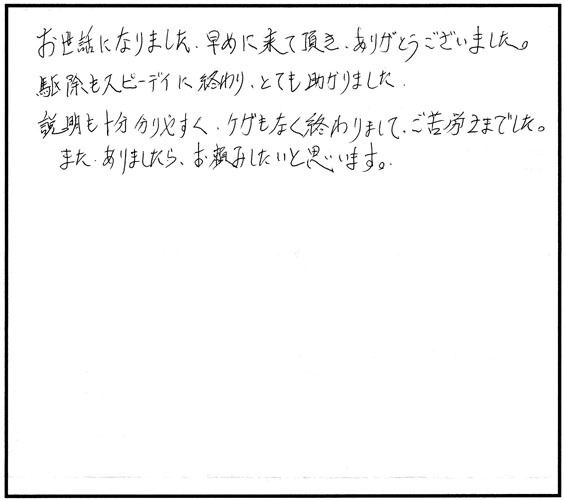 お世話になりました。早めに来て頂き、ありがとうございました。
駆除もスピーディに終わり、とても助かりました.
説明も十分分りやすく、ケガもなく終わりまして、ご苦労さまでした。
また、ありましたら、お頼みしたいと思います。